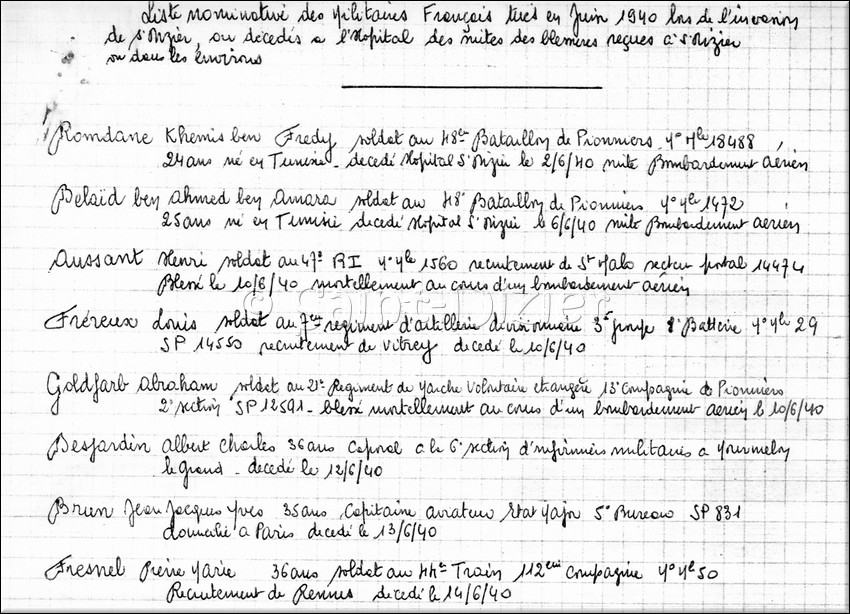 Liste nominative des Militaires Français tués en Juin 1940 lors de l'invasion
de St Dizier, ou décédés a l'Hopital des suites des blessures reçues à St Dizier
ou dans les Environs
Romdane Khemis ben Fredy soldat au 48e Bataillon de Pionniers N° Mle 18488
24 ans né en Tunisie - decedé Hopital St Dizier le 2/6/40 suite Bombardement Aérien
Belaïd ben Ahmed ben Amara soldat au 48e Bataillon de Pionniers N° Mle 1472
25 ans né en Tunisie decedé Hopital St Dizier le 6/6/40 suite Bombardement aérien
Aussant Henri soldat au 47e RI N° Mle 1560 recrutement de St Malo secteur postal 14474
Blessé le 10/6/40 mortellement au cours d'un bombardement aérien
© Saint-Dizier
Fréreux Louis soldat au 7eme regiment d'artillerie divisionnaire 3e groupe Batterie N° Mle 29
SP 14550 recrutement de Vitrey decedé le 10/6/40
Goldfarb Abraham soldat au 21e Regiment de Marche Volontaire etrangère 13e Compagnie de Pionniers
2e section SP 12591 - blessé mortellement au cours d'un bombardement aerien le 10/6/40
Desjardin Albert Charles 36 ans Caporal a la 6e section d'infirmiers militaires a Mourmelon
le grand - decedé le 12/6/40
Brun Jean Jacques Yves 35 ans Capitaine aviateur Etat Major 5e Bureau SP 831
domicilié a Paris decedé le 13/6/40
Fresnel Pierre Marie 36 ans soldat au 44e Train 112eme Compagnie N° Mle 50
Recrutement de Rennes decedé le 14/6/40